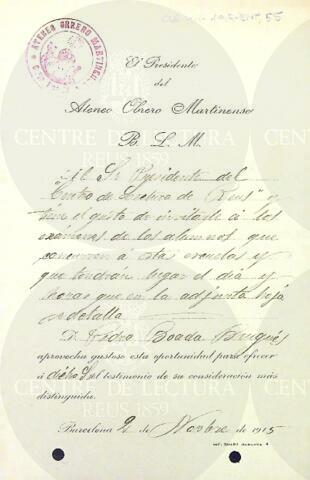 ATENEO OBRERO MARTINEN
El Presidente
del
Ateneo Obrero Martinense
B. L. M.
Al Sr Presidente del
"Centro de Lectura de Reus" y
tiene el gusto de invitarle á los
exámenes de los alumnos que
concurren á estas escuelas y
que tendrán lugar el día y
horas que en la adjunta hoja
se detalla
D. Pedro Boada Brugués
aprovecha gustoso esta oportunidad para ofrecer
á dicho Sr el testimonio de su consideración más
distinguida.
Barcelona 2 de Novbre de 1915
CENTRE DE LECTURA
REUS 1859
CENTRE DE LECTURA
REUS 1859